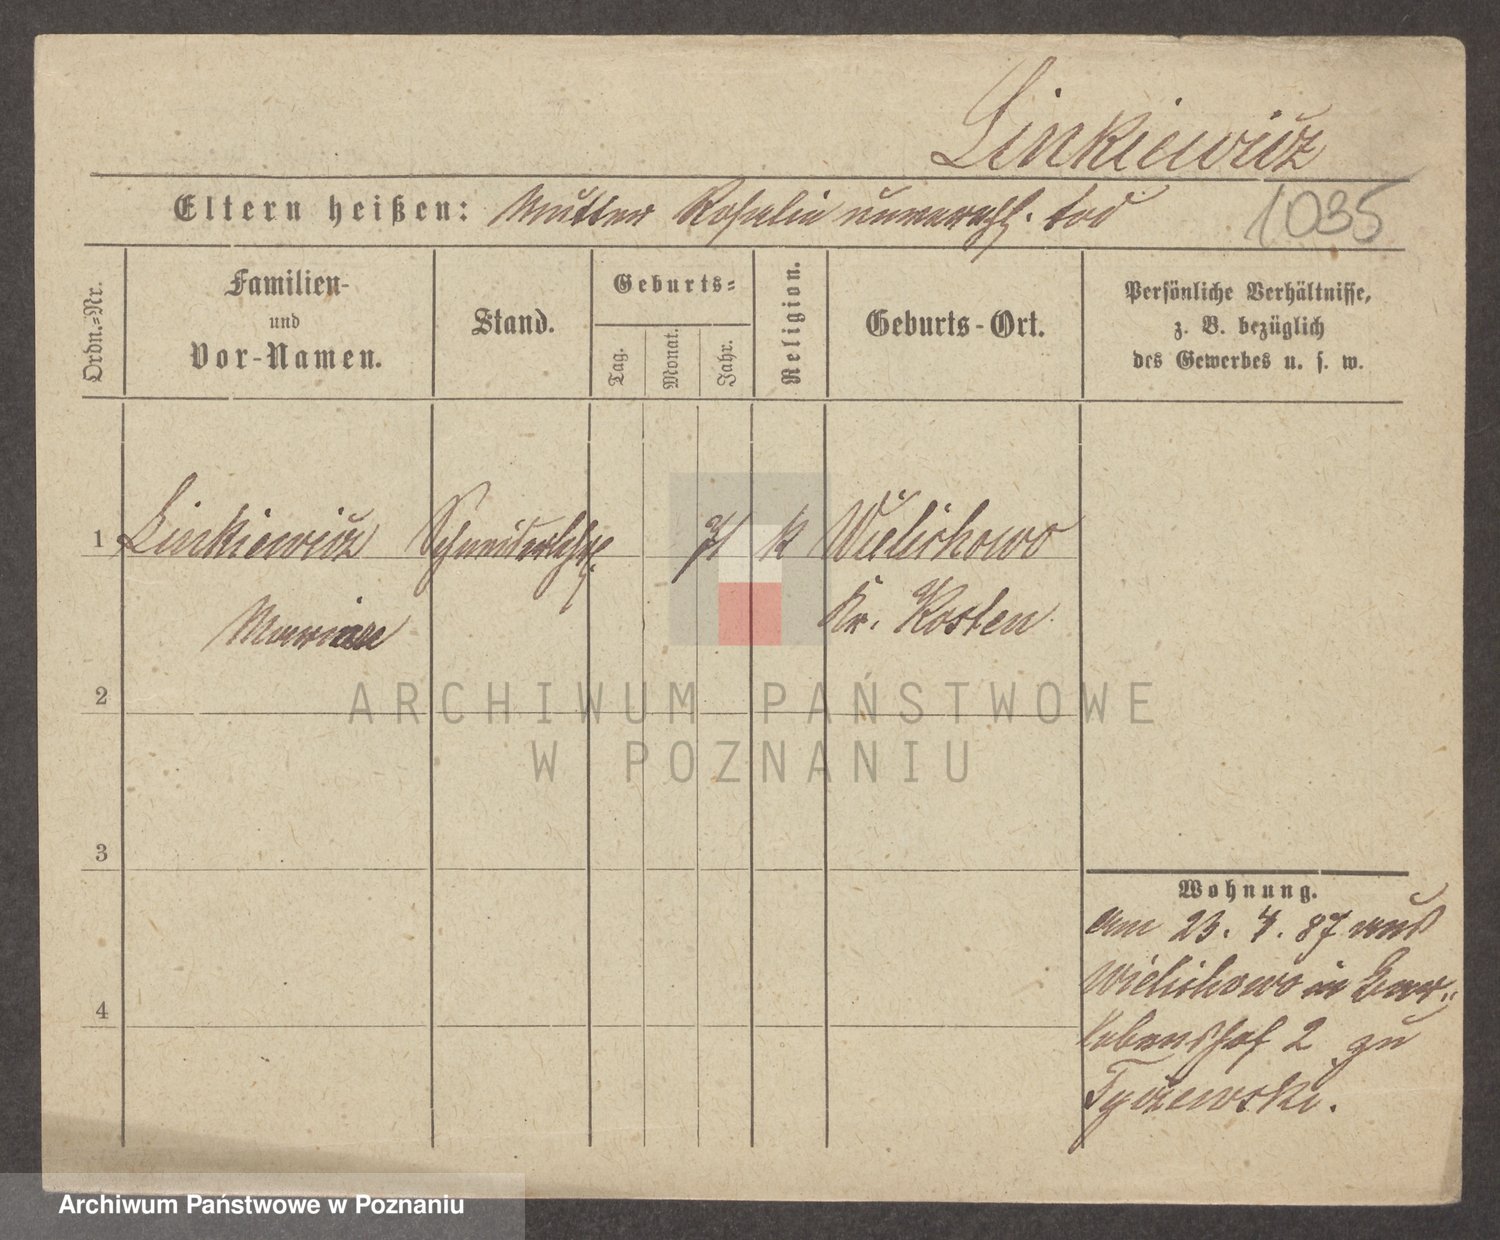 Linkiewicz
Eltern heißen: Mutter Rosalie unverehl. tod
1035
Ordn.-Nr.
Familien-
und
Vor-Namen.
Stand.
Geburts-
Tag.
Monat.
Jahr.
Religion.
Geburts-Ort.
Persönliche Verhältnisse,
z. B. bezüglich
des Gewerbes u. s. w.
1 Linkiewicz Schneiderlehrl. 71 k Wielichowo
Marian Kr. Kosten
2
3
4
Wohnung.
am 23. 4. 87 aus
Wielichowo in
2 zu
ARCHIWUM PAŃSTWOWE
W POZNANIU
Archiwum Państwowe w Poznaniu